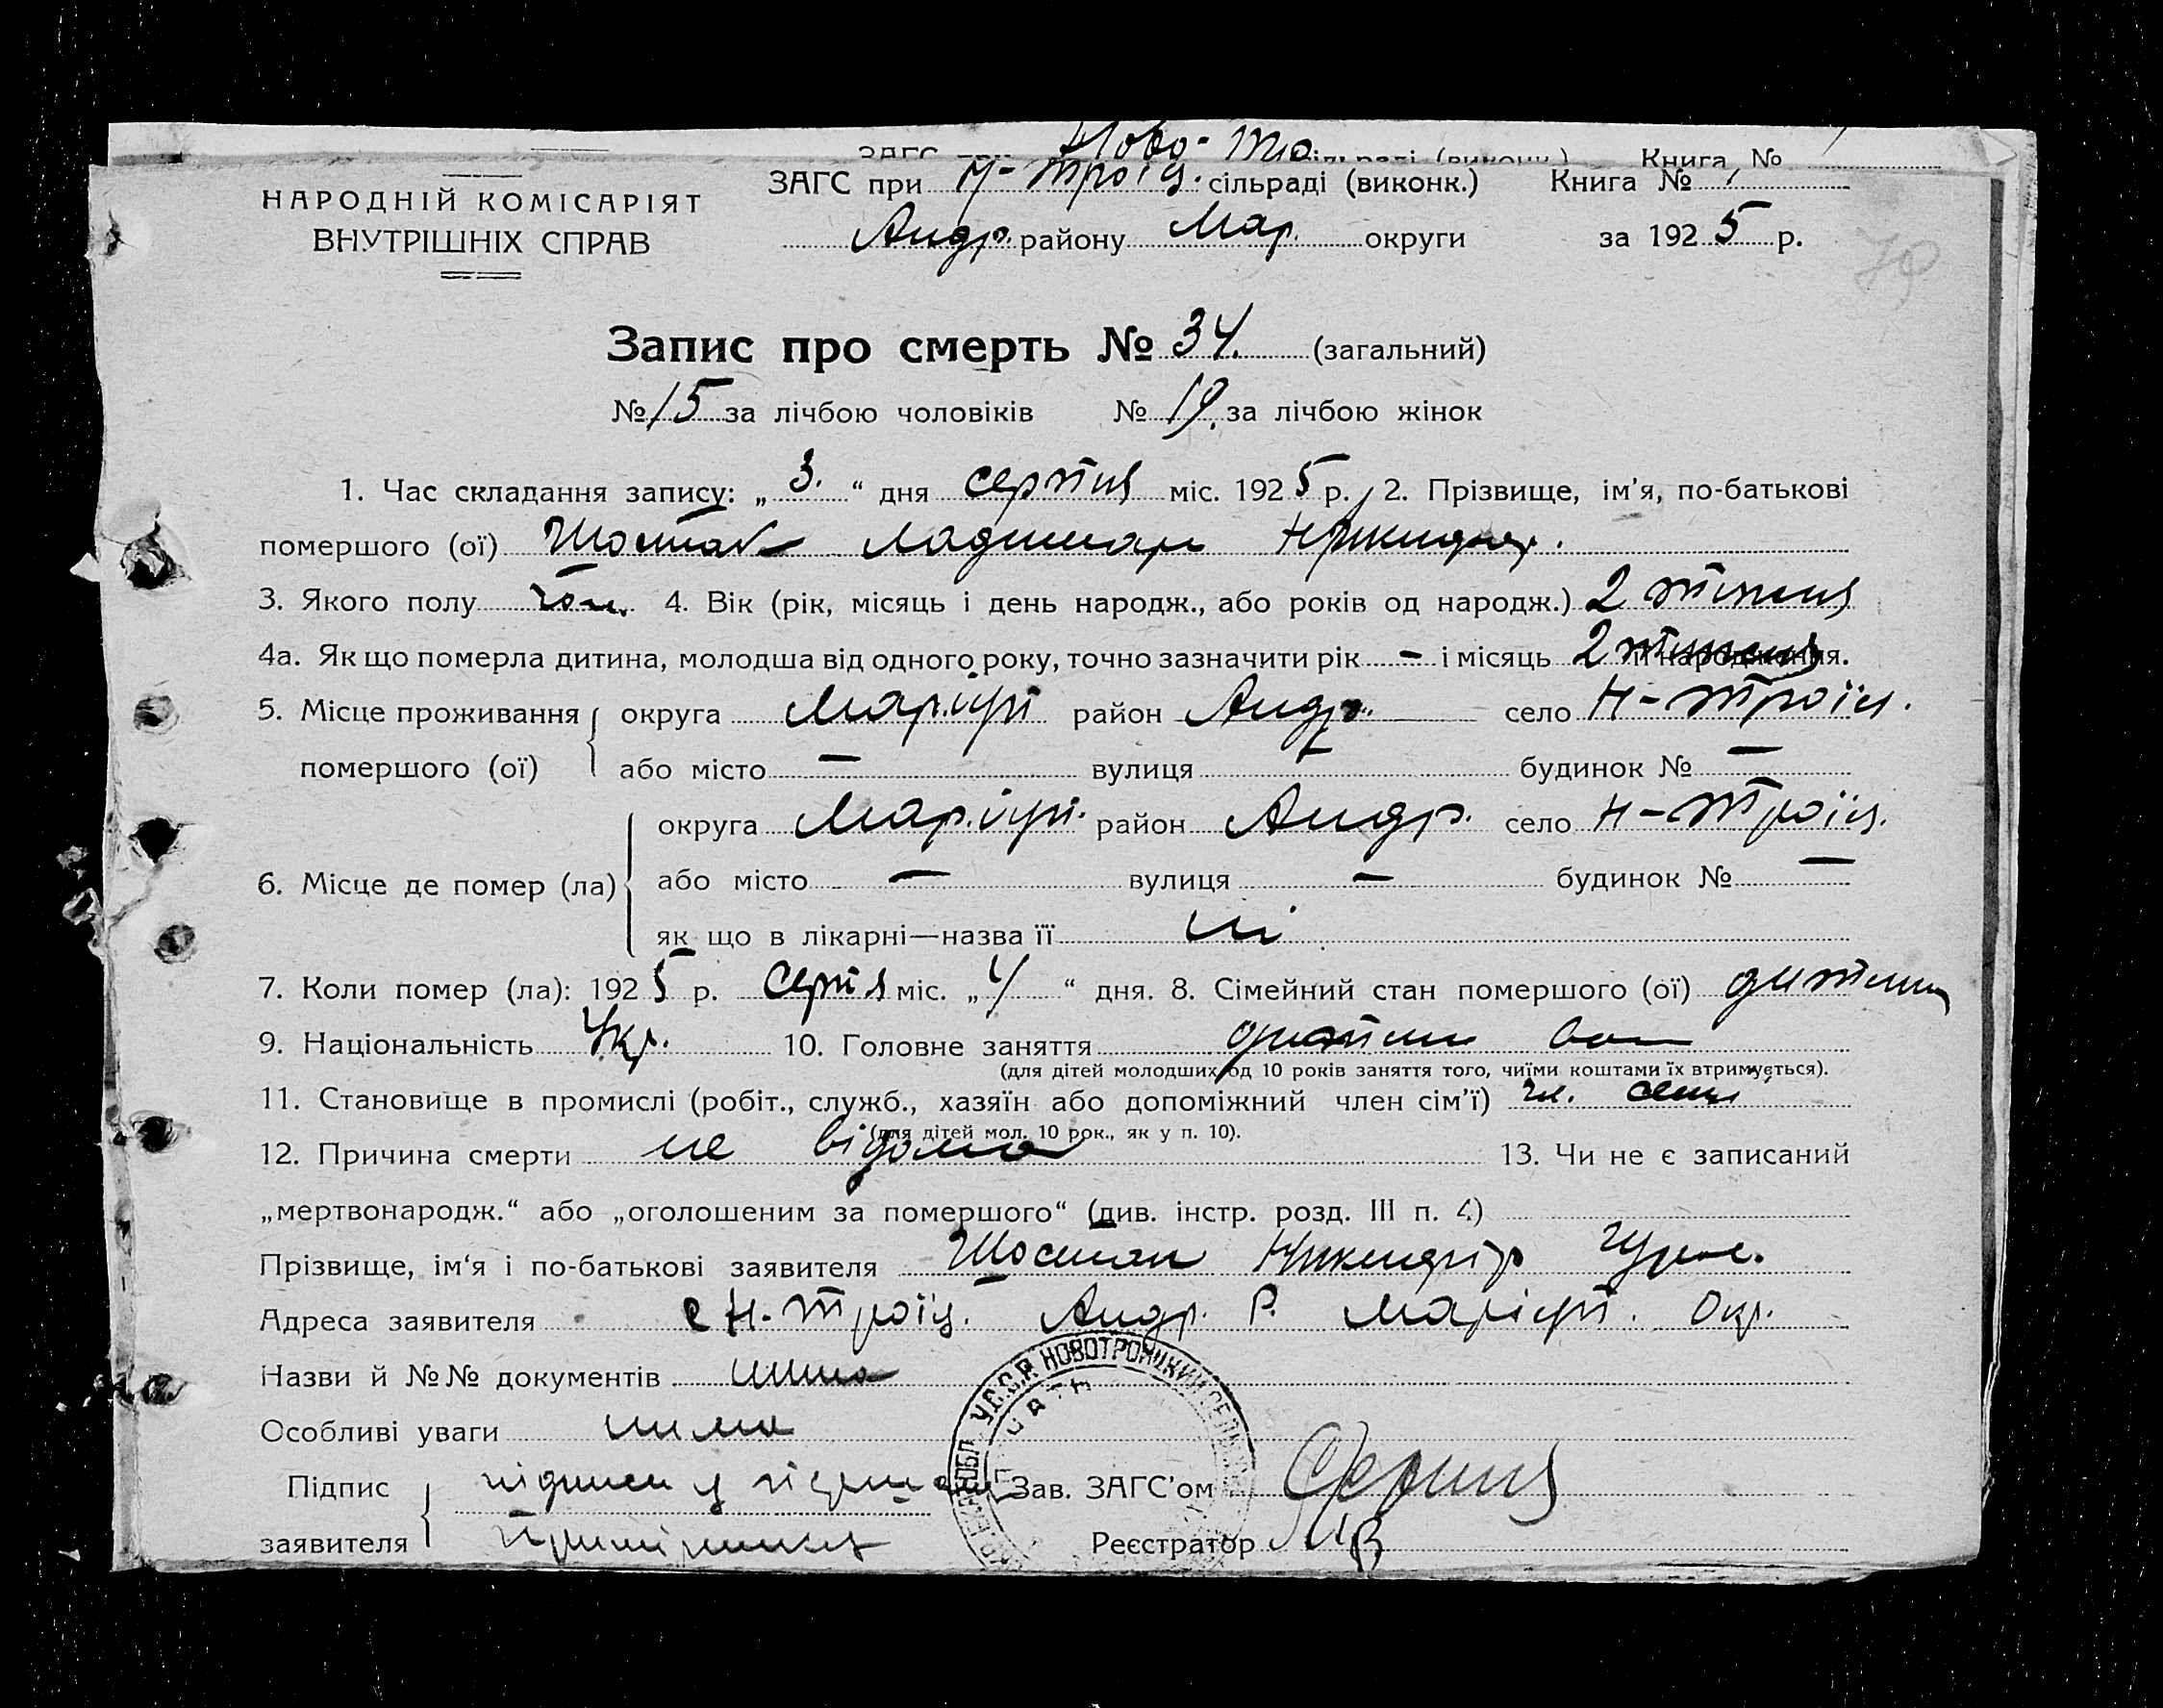 Ново-Тро
ЗАГС при Н-Троїц. сільраді (виконк.) Книга №
НАРОДНІЙ КОМІСАРІЯТ
ВНУТРІШНІХ СПРАВ
Андр. району Мар. округи за 1925 р.
79
Запис про смерть № 34. (загальний)
№ 15 за лічбою чоловіків № 19. за лічбою жінок
1. Час складання запису: „3.“ дня серпня міс. 1925 р. 2. Прізвище, ім'я, по-батькові
помершого (ої) Шостак
3. Якого полу чол. 4. Вік (рік, місяць і день народж., або років од народж.) 2 тижня
4а. Як що померла дитина, молодша від одного року, точно зазначити рік – і місяць 2 тижня її народження.
5. Місце проживання округа Маріуп район Андр. село Н-Троїц.
помершого (ої) або місто — вулиця — будинок № —
округа Маріуп. район Андр. село Н-Троїц.
6. Місце де помер (ла) або місто — вулиця — будинок № —
як що в лікарні—назва її ні
7. Коли помер (ла): 1925 р. серпня міс. „4“ дня. 8. Сімейний стан помершого (ої) дитина
9. Національність Укр. 10. Головне заняття
(для дітей молодших од 10 років заняття того, чиїми коштами їх втримується).
11. Становище в промислі (робіт., служб., хазяїн або допоміжний член сім'ї) чл. сем'ї
(для дітей мол. 10 рок., як у п. 10).
12. Причина смерти не відома 13. Чи не є записаний
„мертвонародж.“ або „оголошеним за помершого“ (див. інстр. розд. III п. 4)
Прізвище, ім'я і по-батькові заявителя Шостак
Адреса заявителя с Н-Троїц. Андр. Р. Маріуп. Окр.
Назви й №№ документів нима
Особливі уваги нима
УССР НОВОТРОИЦКИЙ СЕЛЬ
Підпис підписи у Зав. ЗАГС'ом
заявителя Реєстратор